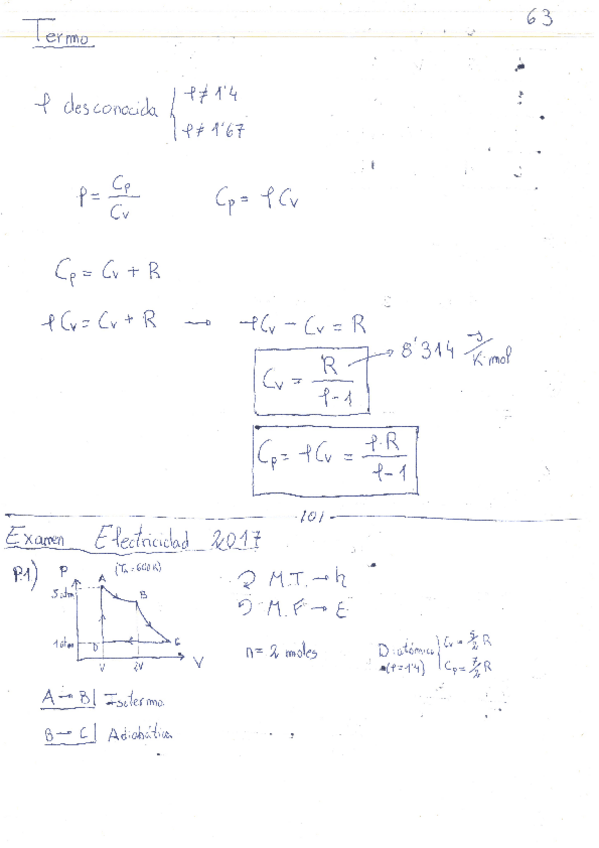 63
Termo
γ desconocida { γ ≠ 1'4
γ ≠ 1'67
γ = Cp/Cv    Cp = γCv
Cp = Cv + R
γCv = Cv + R → γCv - Cv = R
Cv = R/(γ-1) → 8'314 J/K·mol
Cp = γCv = γ·R/(γ-1)
Examen Electricidad 2017
P.1) P A (TA=600K)
5atm B
1atm D C
V 2V V
↻ M.T. → η
↺ M.F → ε
n = 2 moles
Diatómico { Cv = 5/2 R
(γ=1'4) Cp = 7/2 R
A → B | Isotermo
B → C | Adiabática